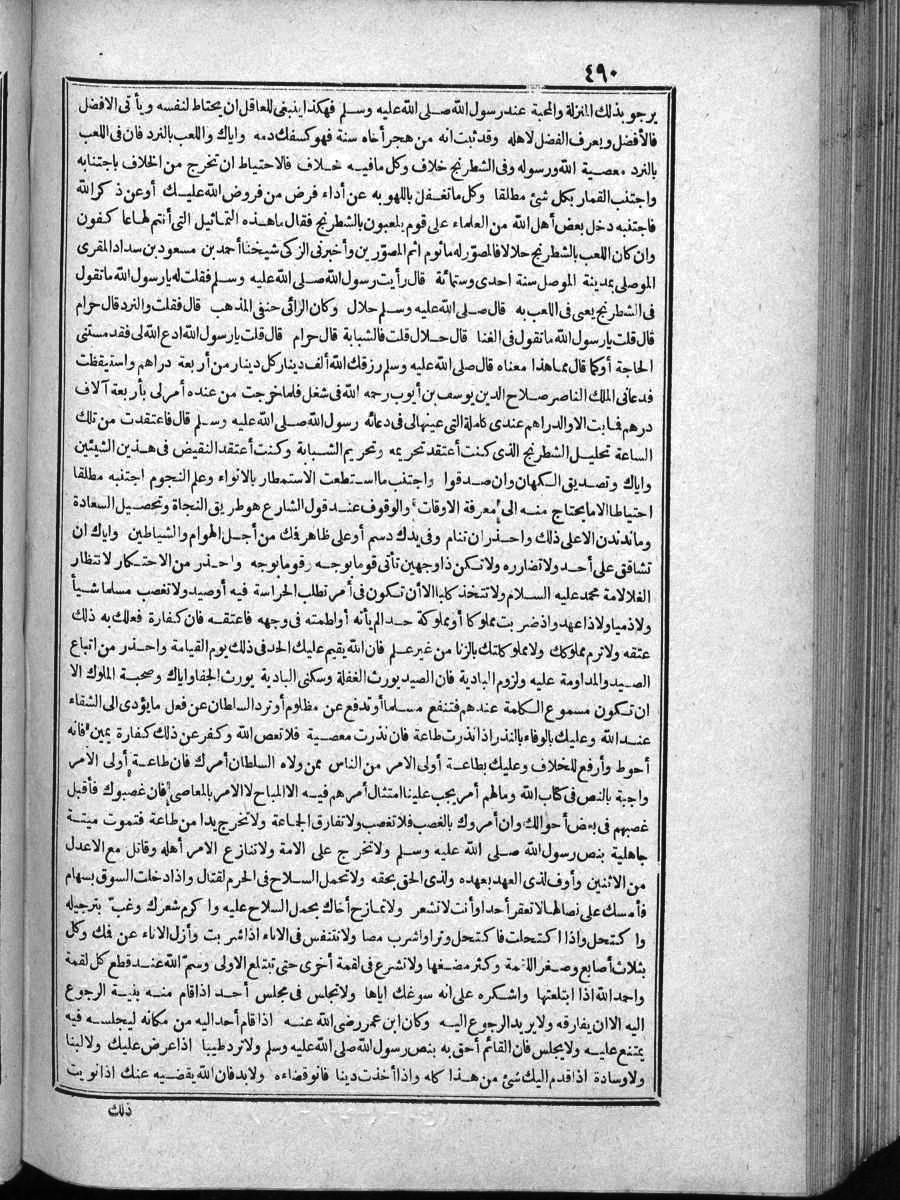 ٤٩٠
يرجو بذلك المنزلة والمحبة عند رسول الله صلى الله عليه وسلم فهكذا ينبغى للعاقل ان يحتاط لنفسه ويأتى الافضل
فالأفضل ويعرف الفضل لاهله وقد ثبت انه من هجر أخاه سنة فهو كسفك دمه واياك واللعب بالنرد فان فى اللعب
بالنرد معصية الله ورسوله وفى الشطرنج خلاف وكل ما فيه خلاف فالاحتياط ان تخرج من الخلاف باجتنابه
واجتنب القمار بكل شئ مطلقا وكل ما تغفل باللهو به عن أداء فرض من فروض الله عليك أو عن ذكر الله
فاجتنبه دخل بعض أهل الله من العلماء على قوم يلعبون بالشطرنج فقال ما هذه التماثيل التى أنتم لها عا كفون
وان كان اللعب بالشطرنج حلالا فالمصوّر له مأثوم اثم المصوّرين وأخبرنى الزكى شيخنا أحمد بن مسعود بن سداد المقرى
الموصلى بمدينة الموصل سنة احدى وستمائة قال رأيت رسول الله صلى الله عليه وسلم فقلت له يارسول الله ما تقول
فى الشطرنج يعنى فى اللعب به قال صلى الله عليه وسلم حلال وكان الرائى حنفى المذهب قال فقلت والنرد قال حرام
قال قلت يارسول الله ما تقول فى الغنا قال حلال قلت فالشبابة قال حرام قال قلت يارسول الله ادع الله لى فقد مستنى
الحاجة أو كما قال مما هذا معناه قال صلى الله عليه وسلم رزقك الله ألف دينار كل دينار من أربعة دراهم واستيقظت
فدعانى الملك الناصر صلاح الدين يوسف بن أيوب رحمه الله فى شغل فلما خرجت من عنده أمر لى بأربعة آلاف
درهم فما بت الا والدراهم عندى كاملة التى عينها لى فى دعائه رسول الله صلى الله عليه وسلم قال فاعتقدت من تلك
الساعة تحليل الشطرنج الذى كنت أعتقد تحريمه وتحريم الشبابة وكنت أعتقد النقيض فى هذين الشيئين
واياك وتصديق الكهان وان صدقوا واجتنب ما استطعت الاستمطار بالانواء وعلم النجوم اجتنبه مطلقا
احتياطا الا ما يحتاج منه الى معرفة الاوقات والوقوف عند قول الشارع هو طريق النجاة وتحصيل السعادة
وماندندن الا على ذلك واحذر ان تنام وفى يدك دسم أو على ظاهر فك من أجل الهوام والشياطين واياك ان
تشاقق على أحد ولا تضارره ولا تكن ذا وجهين تأتى قوما بوجه وقوما بوجه واحذر من الاحتكار لانتظار
الغلا لامة محمد عليه السلام ولا تتخذ كلبا الا أن تكون فى أمر تطلب الحراسة فيه أو صيد ولا تغصب مسلما شيأ
ولا ذميا ولا ذا عهد واذ ضربت مملوكا أو مملوكة حدا لم يأته أو لطمته فى وجهه فاعتقه فان كفارة فعلك به ذلك
عتقه ولا ترم مملوكك ولا مملوكتك بالزنا من غير علم فان الله يقيم عليك الحد فى ذلك يوم القيامة واحذر من اتباع
الصيد والمداومة عليه ولزوم البادية فان الصيد يورث الغفلة وسكنى البادية يورث الجفا واياك وصحبة الملوك الا
ان تكون مسموع الكلمة عندهم فتنفع مسلما أو تدفع عن مظلوم أو ترد السلطان عن فعل ما يؤدى الى الشقاء
عند الله وعليك بالوفاء بالنذر اذا نذرت طاعة فان نذرت معصية فلا تعص الله وكفر عن ذلك كفارة يمين فانه
أحوط وأرفع للخلاف وعليك بطاعة أولى الامر من الناس ممن ولاه السلطان أمرك فان طاعة أولى الأمر
واجبة بالنص فى كتاب الله وما لهم أمر يجب علينا امتثال أمرهم فيه الا المباح لا الامر بالمعاصى فان غصبوك فأقبل
غصبهم فى بعض أحوالك وان أمروك بالغصب فلا تغصب ولا تفارق الجماعة ولا تخرج يدا من طاعة فتموت ميتة
جاهلية بنص رسول الله صلى الله عليه وسلم ولا تخرج على الامة ولا تنازع الامر أهله وقاتل مع الاعدل
من الاثنين وأوف لذى العهد بعهده ولذى الحق بحقه ولا تحمل السلاح فى الحرم لقتال واذا دخلت السوق بسهام
فأمسك على نصالها لا تعقر أحدا وأنت لا تشعر ولا تمازح أخاك بحمل السلاح عليه وا كرم شعرك وغبّ بترجيله
وا كتحل واذا اكتحلت فا كتحل وترا واشرب مصا ولا تتنفس فى الاناء اذا شربت وأزل الاناء عن فك وكل
بثلاث أصابع وصغر اللقمة وكثر مضغها ولا تشرع فى لقمة أخرى حتى تبتلع الاولى وسمّ الله عند قطع كل لقمة
واحمد الله اذا ابتلعتها واشكره على انه سوغك اياها ولا تجلس فى مجلس أحد اذا قام منه بنية الرجوع
اليه الا ان يفارقه ولا يريد الرجوع اليه وكان ابن عمر رضى الله عنه اذا قام أحد اليه من مكانه ليجلسه فيه
يمتنع عليه ولا يجلس فان القائم أحق به بنص رسول الله صلى الله عليه وسلم ولا ترد طيبا اذا عرض عليك ولا لبنا
ولا وسادة اذا قدم اليك شئ من هذا كله واذا أخذت دينا فانو قضاءه ولا بد فان الله يقضيه عنك اذا نويت
ذلك